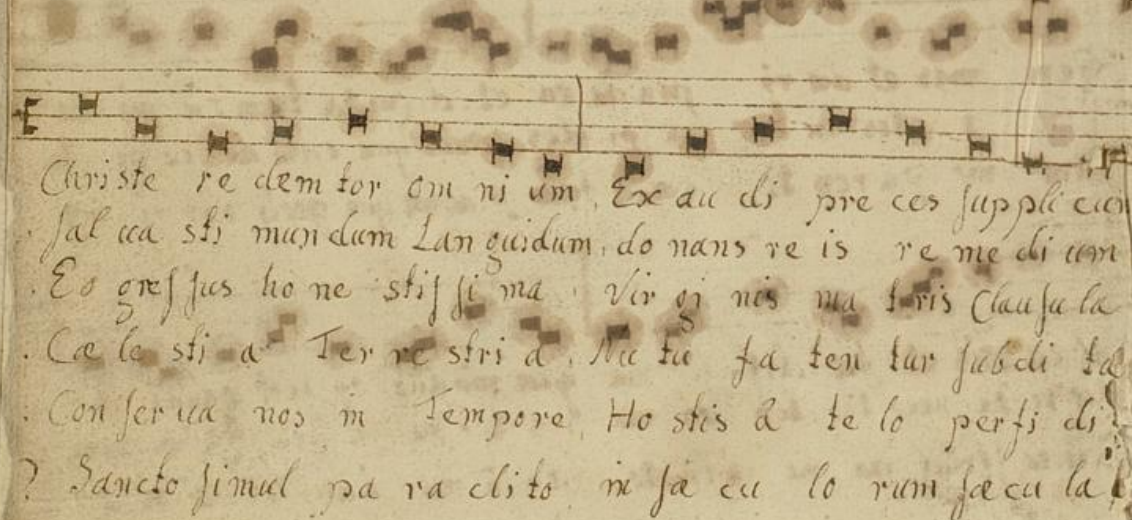 Christe re dem tor om ni um. Ex au di pre ces suppli cum
sal ua sti mun dum Lan guidum, do nans re is re me di um
Eo gressus ho ne stissi ma. Vir gi nis ma tris Clausu la
Cæ le sti a Ter re stri a. Nu tu fa ten tur subdi ta
Con ser ua nos in Tempore Ho stis a te lo perfi di
Sancto simul pa ra clito in sæ cu lo rum sæcu la